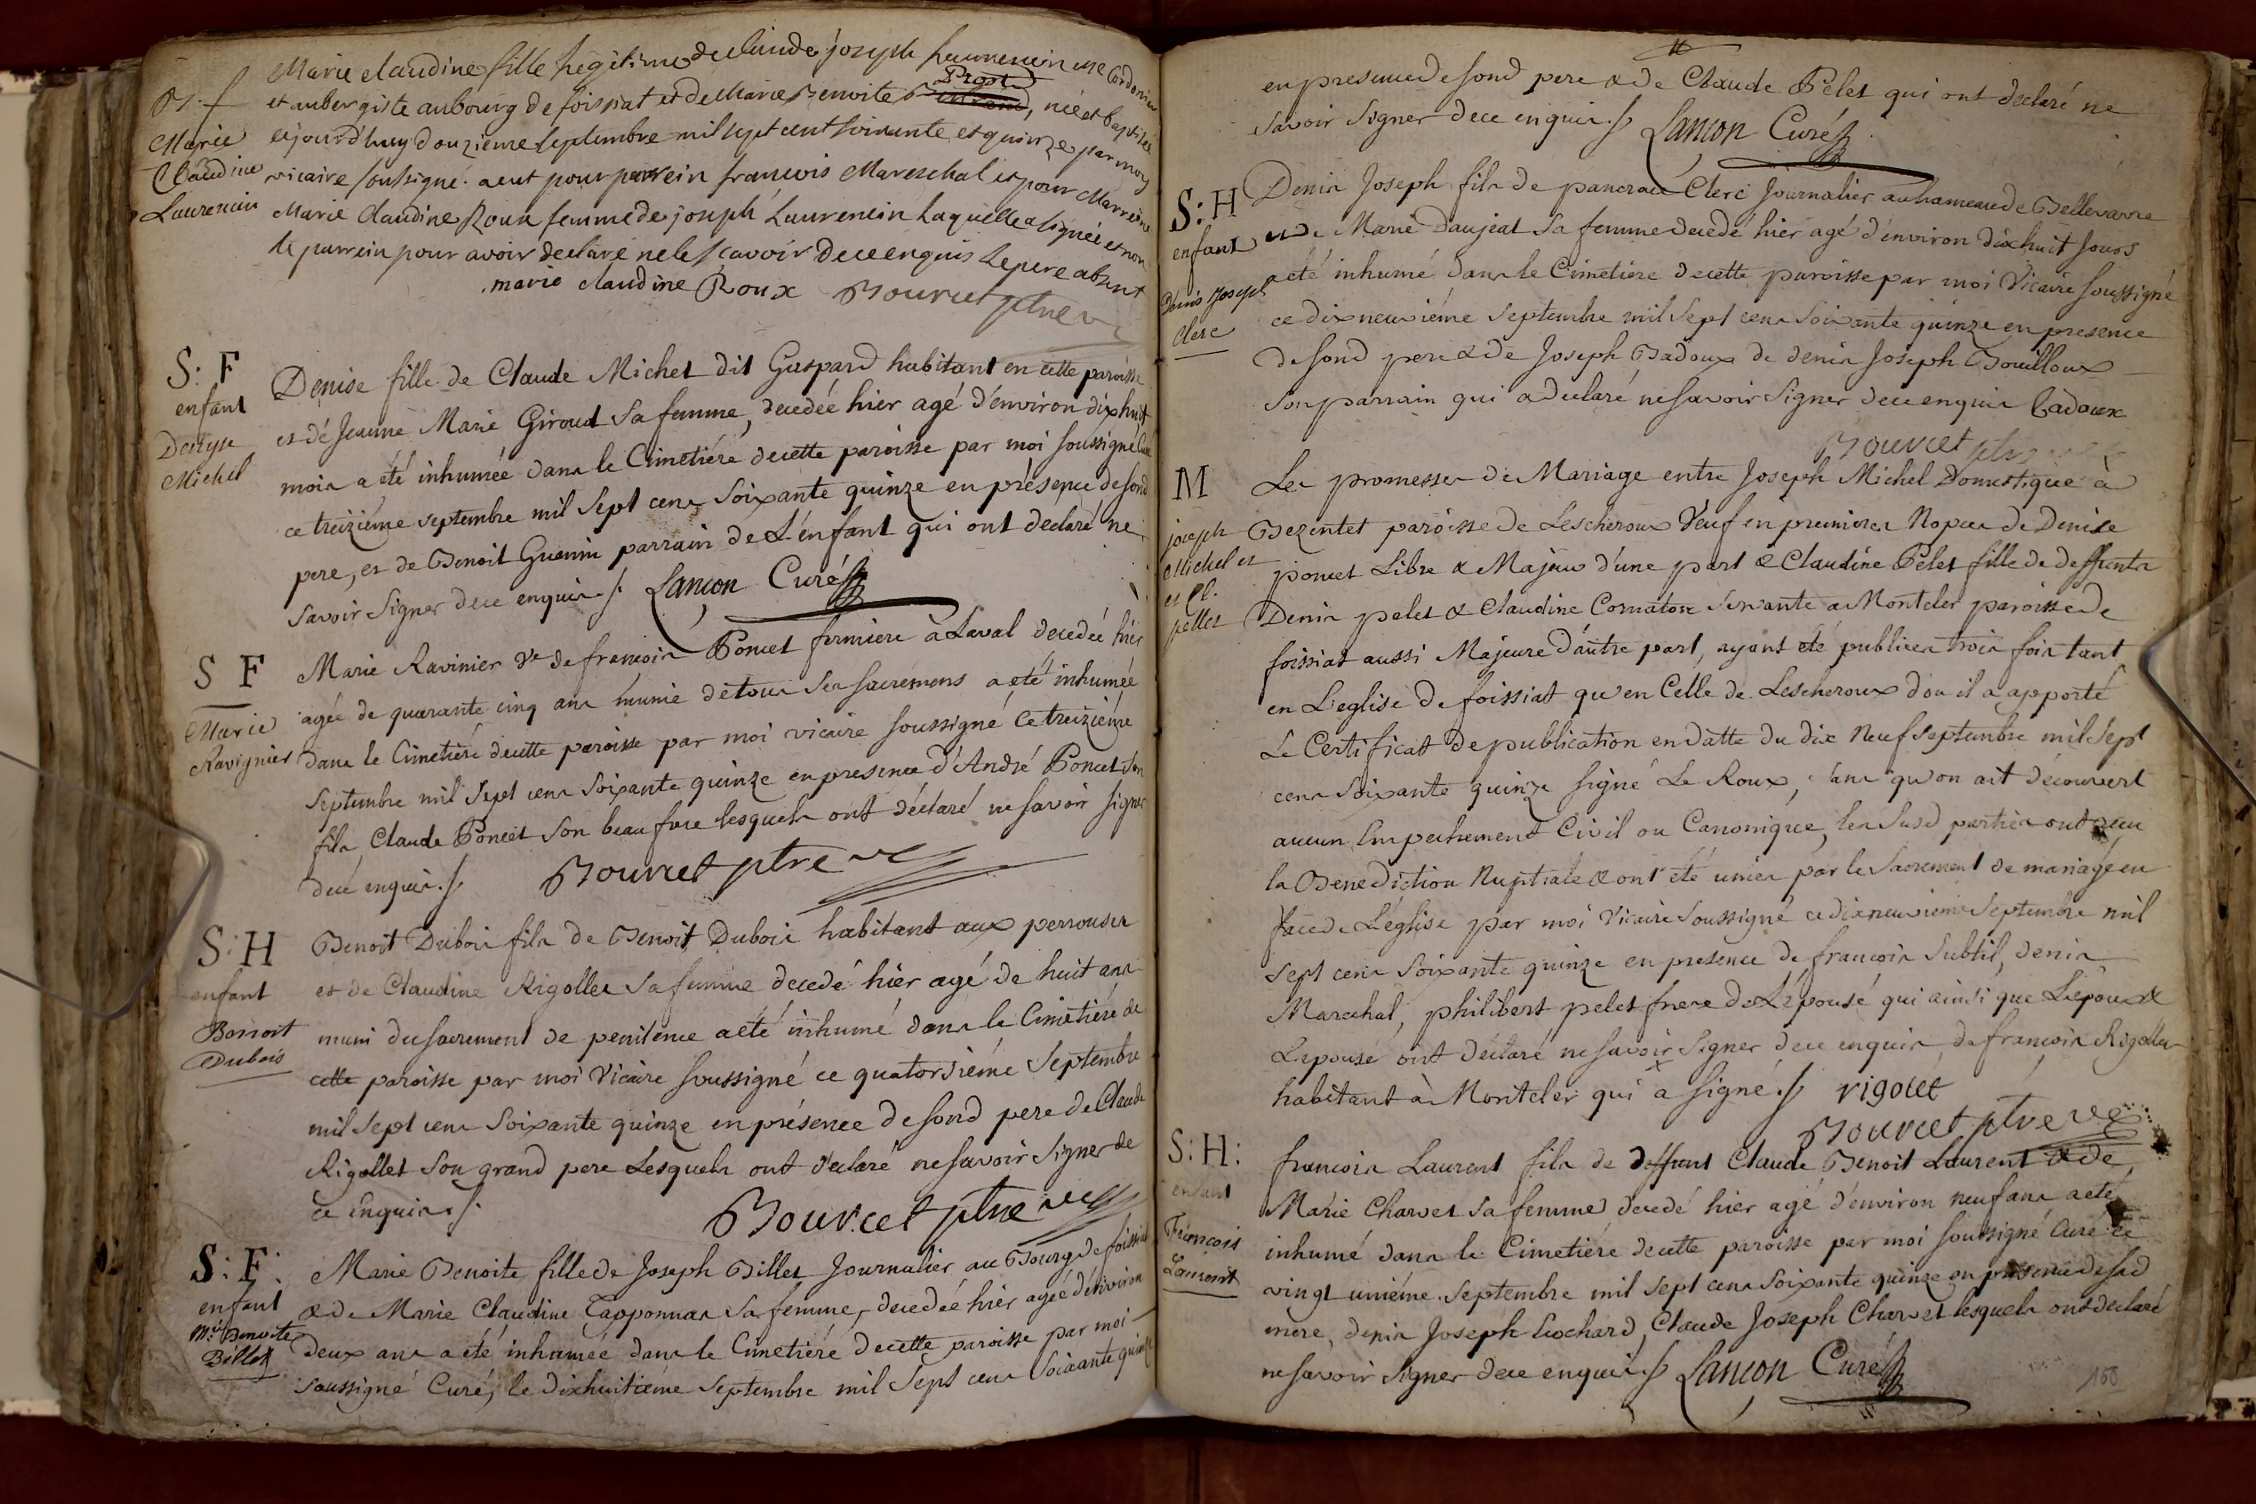 B: f
Marie
Claudine
Laurencin
Marie claudine fille legitime de claude joseph Laurencin me Cordonnier
et aubergiste au bourg de foissiat et de Marie Benoite Prost, née et baptisée
cejourd'huy douzieme septembre mil sept cent soixante et quinze par moy
vicaire soussigné. a eut pour parrein francois Mareschal et pour Marreine
Marie Claudine Roux femme de joseph Laurencin laquelle a signée et non
le parrein pour avoir declaré ne le scavoir de ce enquis le pere absent
marie claudine Roux Bourcet ptre v
S: F
enfant
Denyse
Michel
Denise fille de Claude Michel dit Gaspard habitant en cette paroisse
et de Jeanne Marie Giroud sa femme, decedée hier agé d'environ dix huit
mois a été inhumée dans le Cimetiére de cette paroisse par moi soussigné Curé
ce treizième septembre mil sept cens soixante quinze en présence de sond
pere, et de Benoit Guenin parrain de L'enfant qui ont déclaré ne
savoir signer de ce enquis ./. Lancon Curé
S F
Marie
Ravignier
Marie Ravinier ve de francois Poncet fermiere à Laval decedée hier
agée de quarante cinq ans munie de tous ses sacremens a eté inhumée
dans le Cimetiére de cette paroisse par moi vicaire soussigné ce treiziéme
septembre mil sept cens soixante quinze en presence d'André Poncet son
fils, Claude Poncet son beau frere lesquels ont déclaré ne savoir signer
de ce enquis ./. Bourcet ptre vic
S: H
enfant
Benoit
Dubois
Benoit Dubois fils de Benoit Dubois habitant aux perrouses
et de Claudine Rigollet sa femme decedé hier agé de huit ans
muni du sacrement de penitence a été inhumé dans le Cimetiére de
cette paroisse par moi Vicaire soussigné ce quatorsiéme Septembre
mil sept cens soixante quinze en présence de sond pere de Claude
Rigollet son grand pere Lesquels ont déclaré ne savoir signer de
ce enquis ./. Bourcet ptre vic
S: F:
enfant
Me Benoite
Billet
Marie Benoite fille de Joseph Billet Journalier au Bourg de foissiat
& de Marie Claudine Tapponnas sa femme, decedée hier agée d'environ
deux ans a été inhumée dans le Cimetiére de cette paroisse par moi
soussigné Curé, le dixhuitiéme septembre mil sept cens soixante quinze
en presence de sond pere & de Claude Pelet qui ont declaré ne
savoir signer de ce enquis ./. Lancon Curé
S: H
enfant
Denis Joseph
Clerc
Denis Joseph fils de pancrace Clerc Journalier au hameau de Bellevavre
et de Marie Daujeat sa femme decedé hier agé d'environ dix huit jours
a été inhumé dans le Cimetiere de cette paroisse par moi Vicaire soussigné
ce dix neuviéme septembre mil sept cens soixante quinze en presence
de sond pere & de Joseph Badoux de denis Joseph Bouilloux
son parrain qui a declaré ne savoir signer de ce enquis Badoux
Bourcet ptre
M
joseph
Michel et
et Cl.
pellet
Les promesses de Mariage entre Joseph Michel Domestique à
Bezentet paroisse de Lescheroux Veuf en premieres Nopces de Denise
poncet Libre & Majeur d'une part & Claudine Pelet fille de deffunts
Denis pelet & Claudine Cornaton servante a Monteler paroisse de
foissiat aussi Majeure d'autre part, ayant eté publiées trois fois tant
en L'eglise de foissiat qu'en Celle de Lescheroux d'ou il a apporté
Le Certificat de publication en datte du dix Neuf septembre mil sept
cens soixante quinze signé Le Roux, sans qu'on ait découvert
aucun Empechement Civil ou Canonique, les susd parties ont reçu
la Benediction Nuptiale & ont été unies par le Sacrement de mariage en
face de L'église par moi Vicaire soussigné ce dix neuvieme septembre mil
sept cens soixante quinze en presence de francois Subtil, denis
Marechal, philibert pelet frere de L'épousé qui ainsi que L'époux &
L'epouse ont déclaré ne savoir signer de ce enquis, de francois Rigollet
habitant à Monteler qui a signé ./. rigolet
Bourcet ptre vic
S: H:
enfant
François
Laurent
francois Laurent fils de deffunt Claude Benoit Laurent & de
Marie Charvet sa femme decedé hier agé d'environ neuf ans a eté
inhumé dans le Cimetiére de cette paroisse par moi soussigné Curé ce
vingt uniéme septembre mil sept cens soixante quinze en presence de sad
mere, denis Joseph Lochard, Claude Joseph Charvet lesquels ont declaré
ne savoir signer de ce enquis ./. Lancon Curé